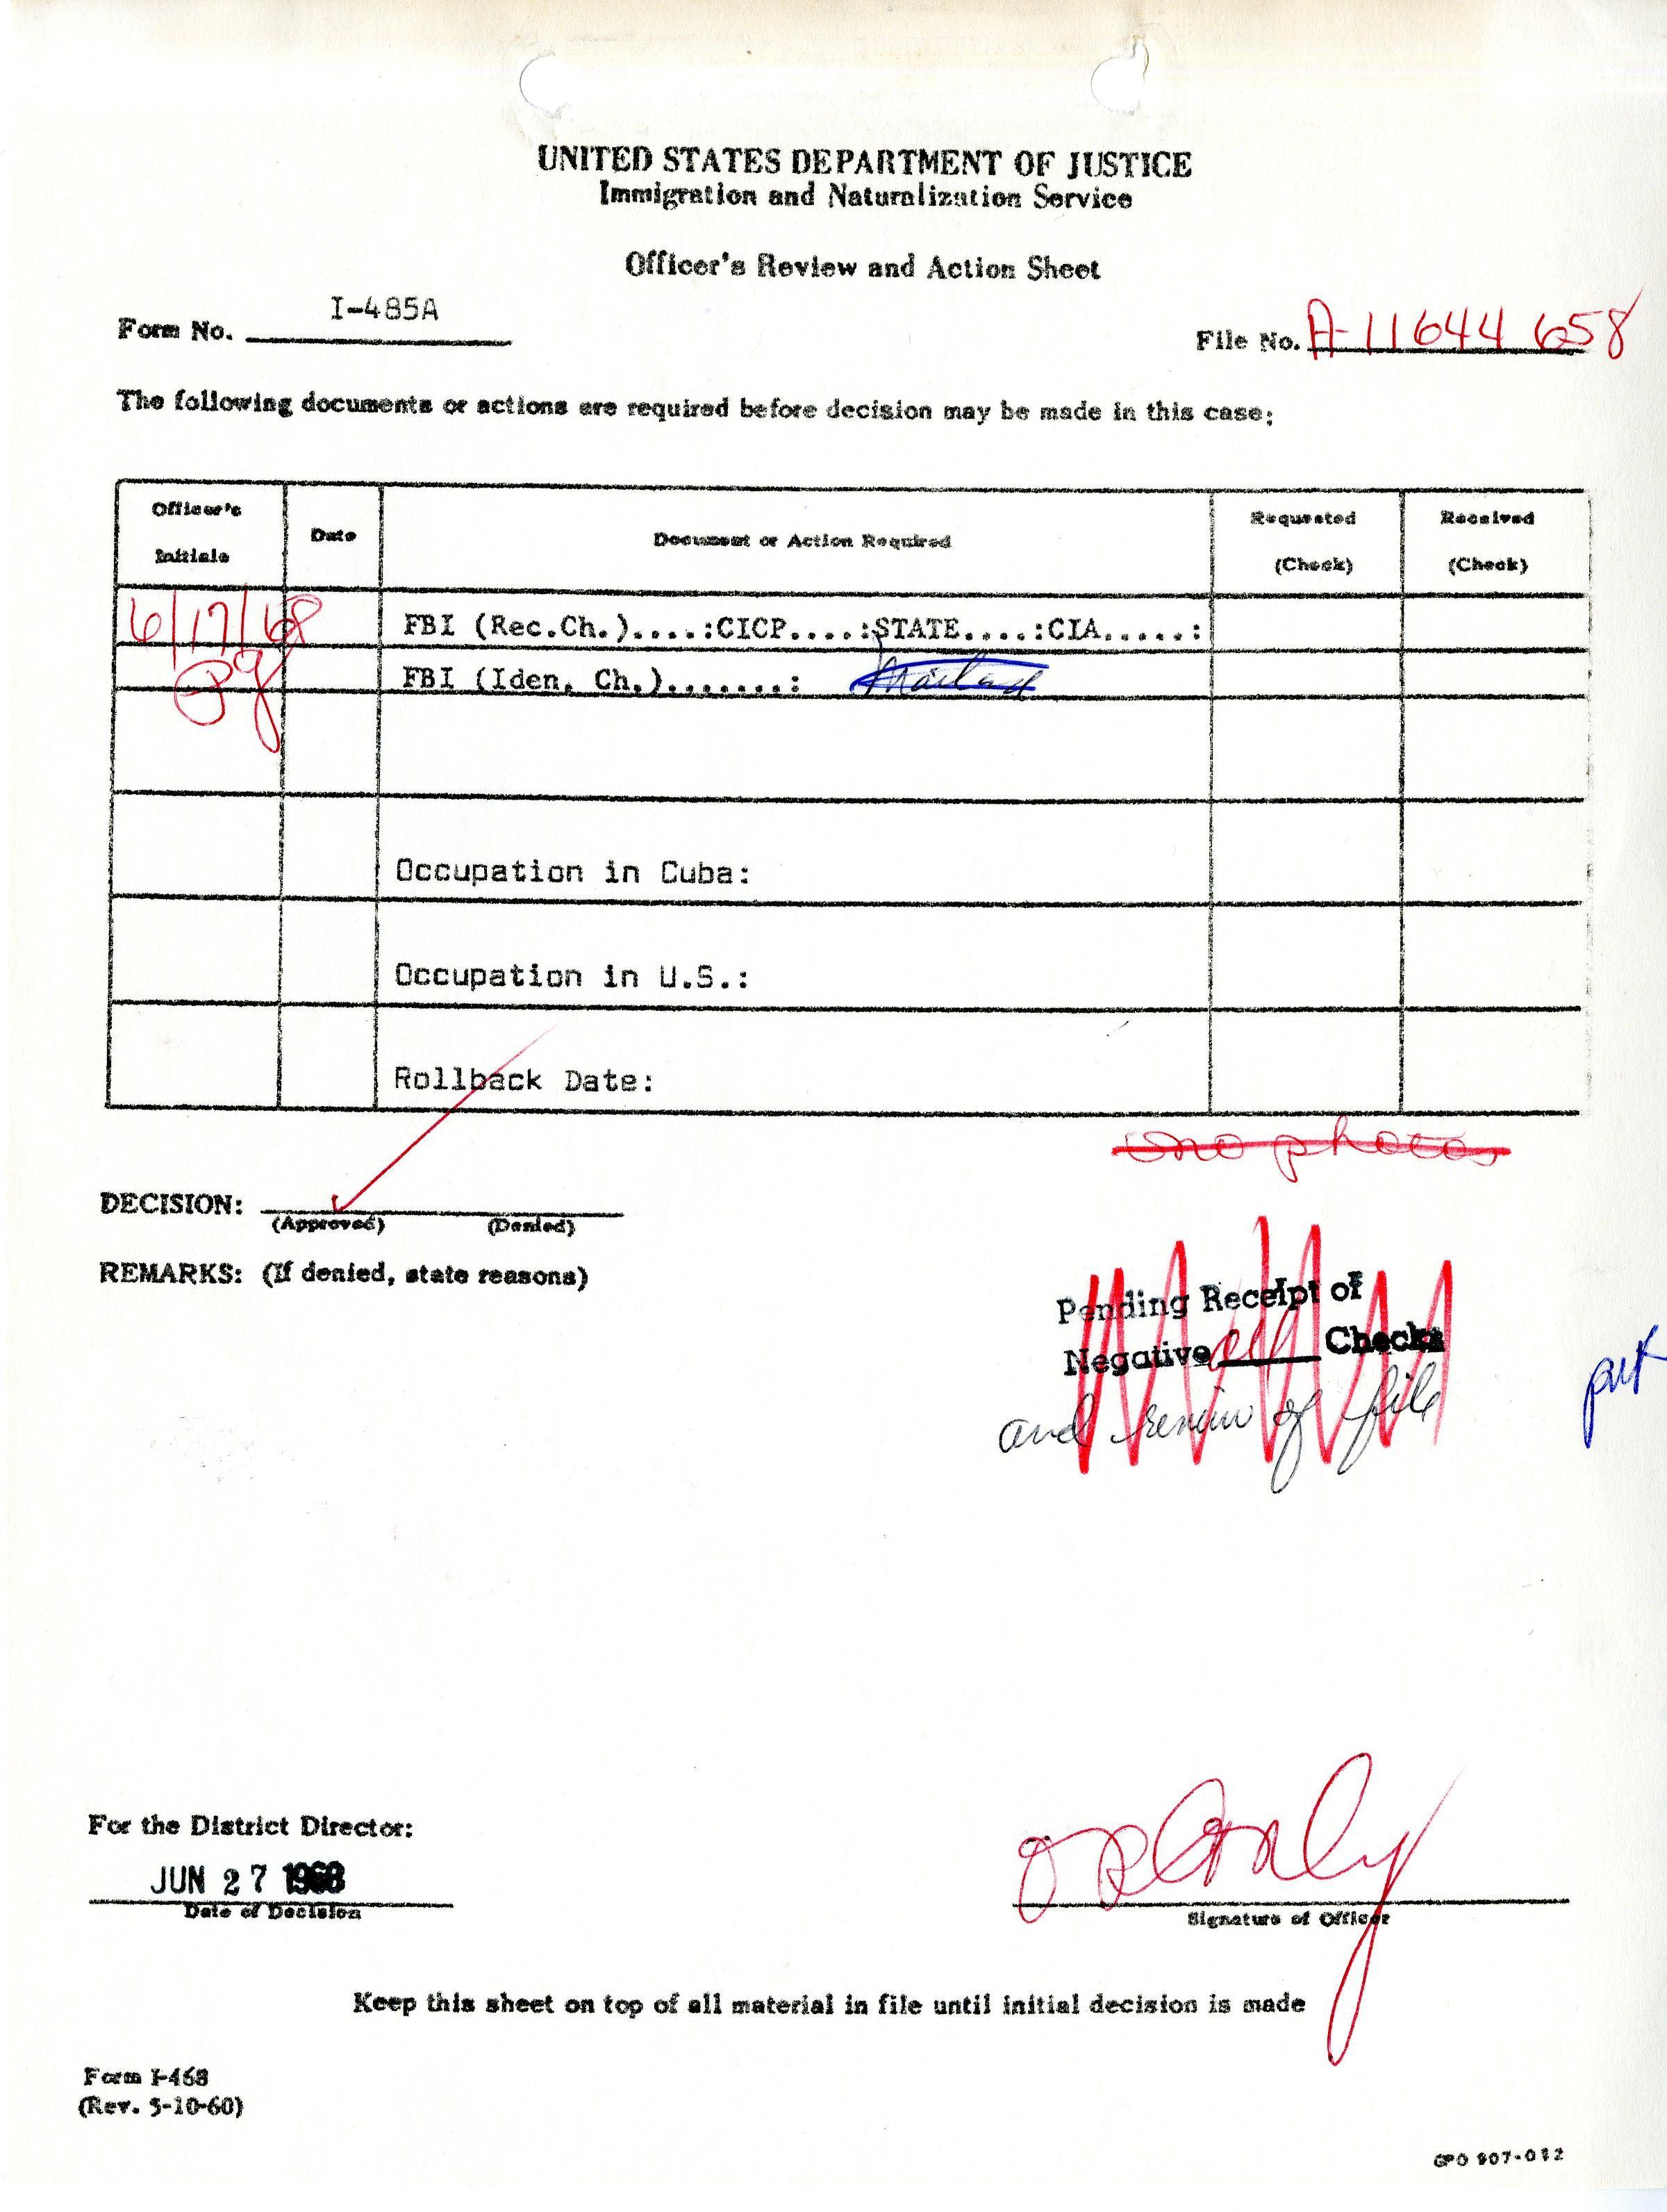 UNITED STATES DEPARTMENT OF JUSTICE
Immigration and Naturalization Service
Officer's Review and Action Sheet
Form No. I-485A
File No. A-11644 658
The following documents or actions are required before decision may be made in this case:
Officer's Initials
Date
Document or Action Required
Requested (Check)
Received (Check)
6/17/68
FBI (Rec.Ch.)....:CICP....:STATE....:CIA.....:
FBI (Iden. Ch.).......:
Occupation in Cuba:
Occupation in U.S.:
Rollback Date:
photos
DECISION:
(Approved) (Denied)
REMARKS: (If denied, state reasons)
Pending Receipt of
Negative all Checks
and review of file
For the District Director:
JUN 27 1968
Date of Decision
Signature of Officer
Keep this sheet on top of all material in file until initial decision is made
Form I-468
(Rev. 5-10-60)
GPO 907-012